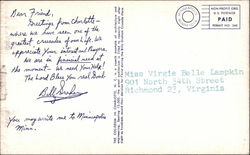 Dear Friend,
Greetings from Charlotte -
where we have seen one of the
greatest crusades of our life. We
appreciate your interest and Prayers.
We are in financial need at
the moment - we need your Help!
The Lord Bless You real Good.
Billy Graham
You may write me to Minneapolis
Minn.
NON-PROFIT ORG.
U.S. POSTAGE
PAID
Miss Virgie Belle Lampkin
904 North 34th Street
Richmond 23, Virginia